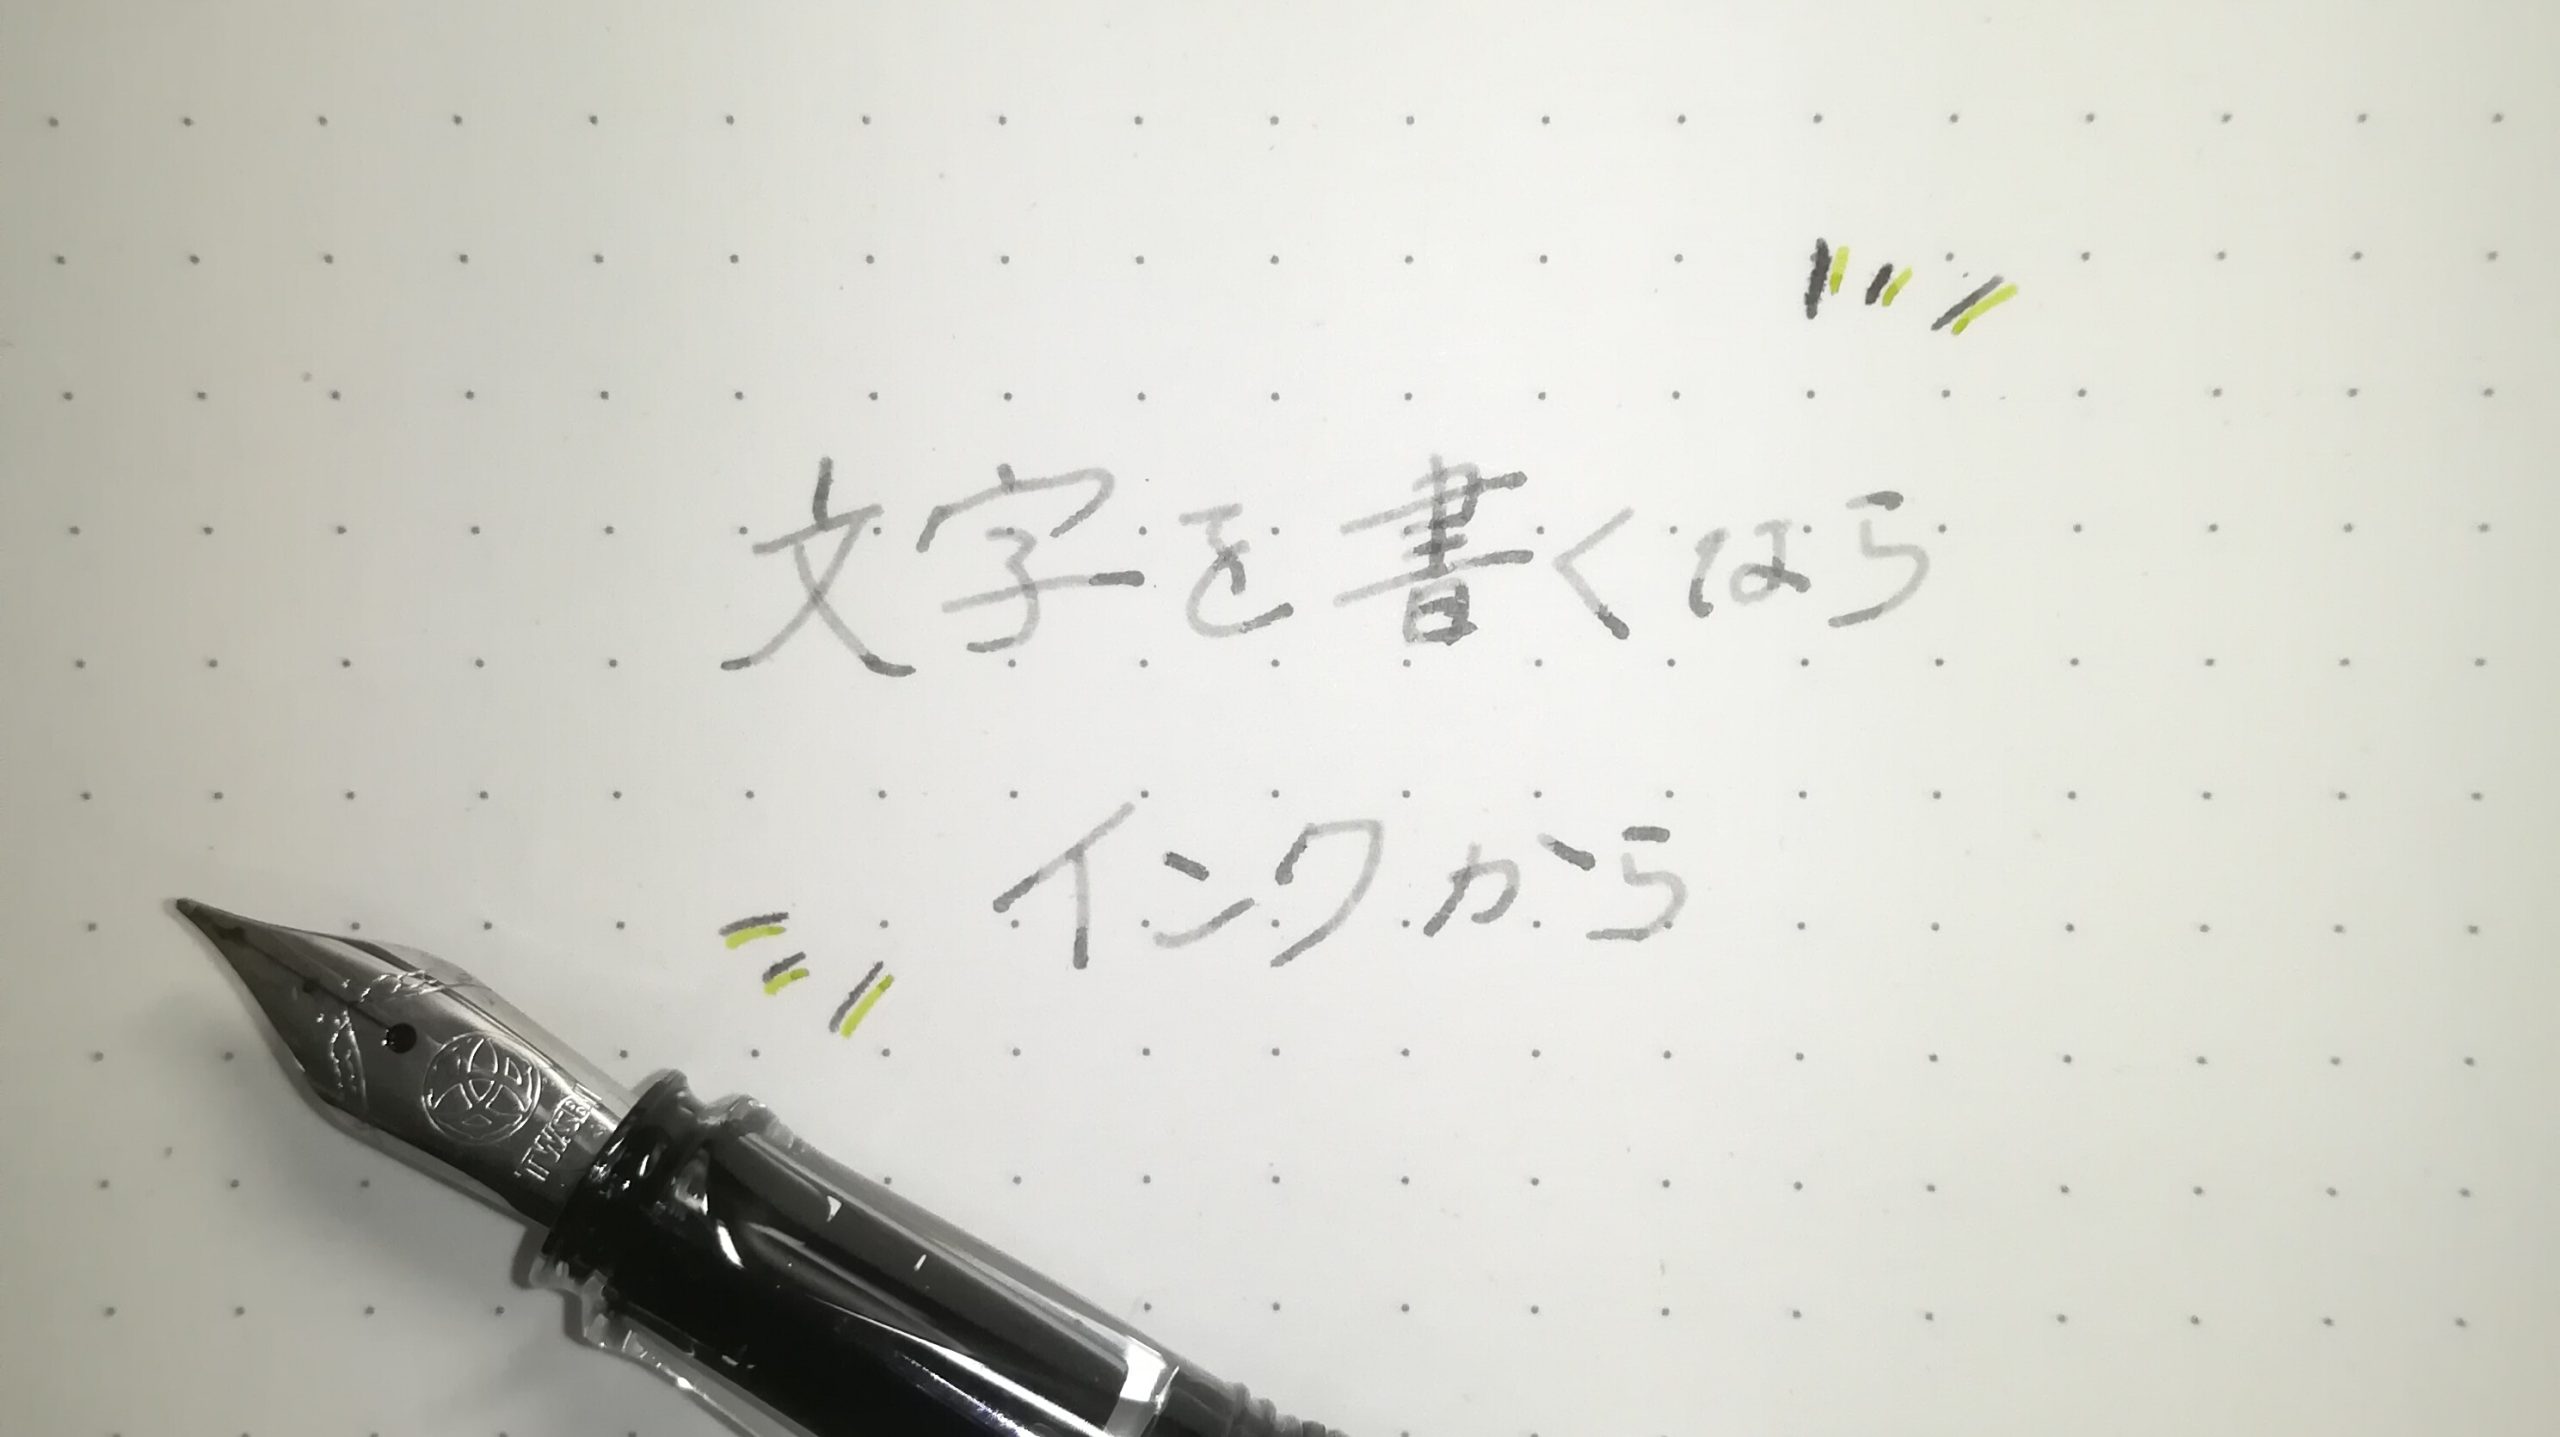 文字を書くはら
インクから
TWSBI